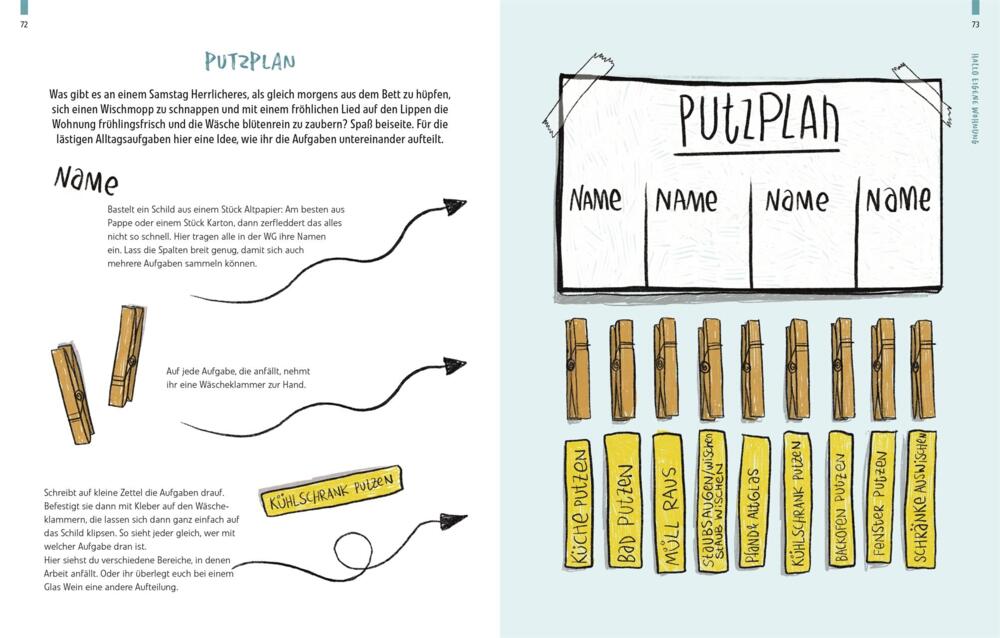 72
PUTZPLAN
Was gibt es an einem Samstag Herrlicheres, als gleich morgens aus dem Bett zu hüpfen,
sich einen Wischmopp zu schnappen und mit einem fröhlichen Lied auf den Lippen die
Wohnung frühlingsfrisch und die Wäsche blütenrein zu zaubern? Spaß beiseite. Für die
lästigen Alltagsaufgaben hier eine Idee, wie ihr die Aufgaben untereinander aufteilt.
NAME
Bastelt ein Schild aus einem Stück Altpapier: Am besten aus
Pappe oder einem Stück Karton, dann zerfleddert das alles
nicht so schnell. Hier tragen alle in der WG ihre Namen
ein. Lass die Spalten breit genug, damit sich auch
mehrere Aufgaben sammeln können.
Auf jede Aufgabe, die anfällt, nehmt
ihr eine Wäscheklammer zur Hand.
KÜHLSCHRANK PUTZEN
Schreibt auf kleine Zettel die Aufgaben drauf.
Befestigt sie dann mit Kleber auf den Wäsche-
klammern, die lassen sich dann ganz einfach auf
das Schild klipsen. So sieht jeder gleich, wer mit
welcher Aufgabe dran ist.
Hier siehst du verschiedene Bereiche, in denen
Arbeit anfällt. Oder ihr überlegt euch bei einem
Glas Wein eine andere Aufteilung.
73
HALLO EIGENE WOHNUNG
PUTZPLAN
NAME NAME NAME NAME
KÜCHE PUTZEN
BAD PUTZEN
MÜLL RAUS
STAUBSAUGEN/WISCHEN
STAUB WISCHEN
PFAND & ALTGLAS
KÜHLSCHRANK PUTZEN
BACKOFEN PUTZEN
FENSTER PUTZEN
SCHRÄNKE AUSWISCHEN